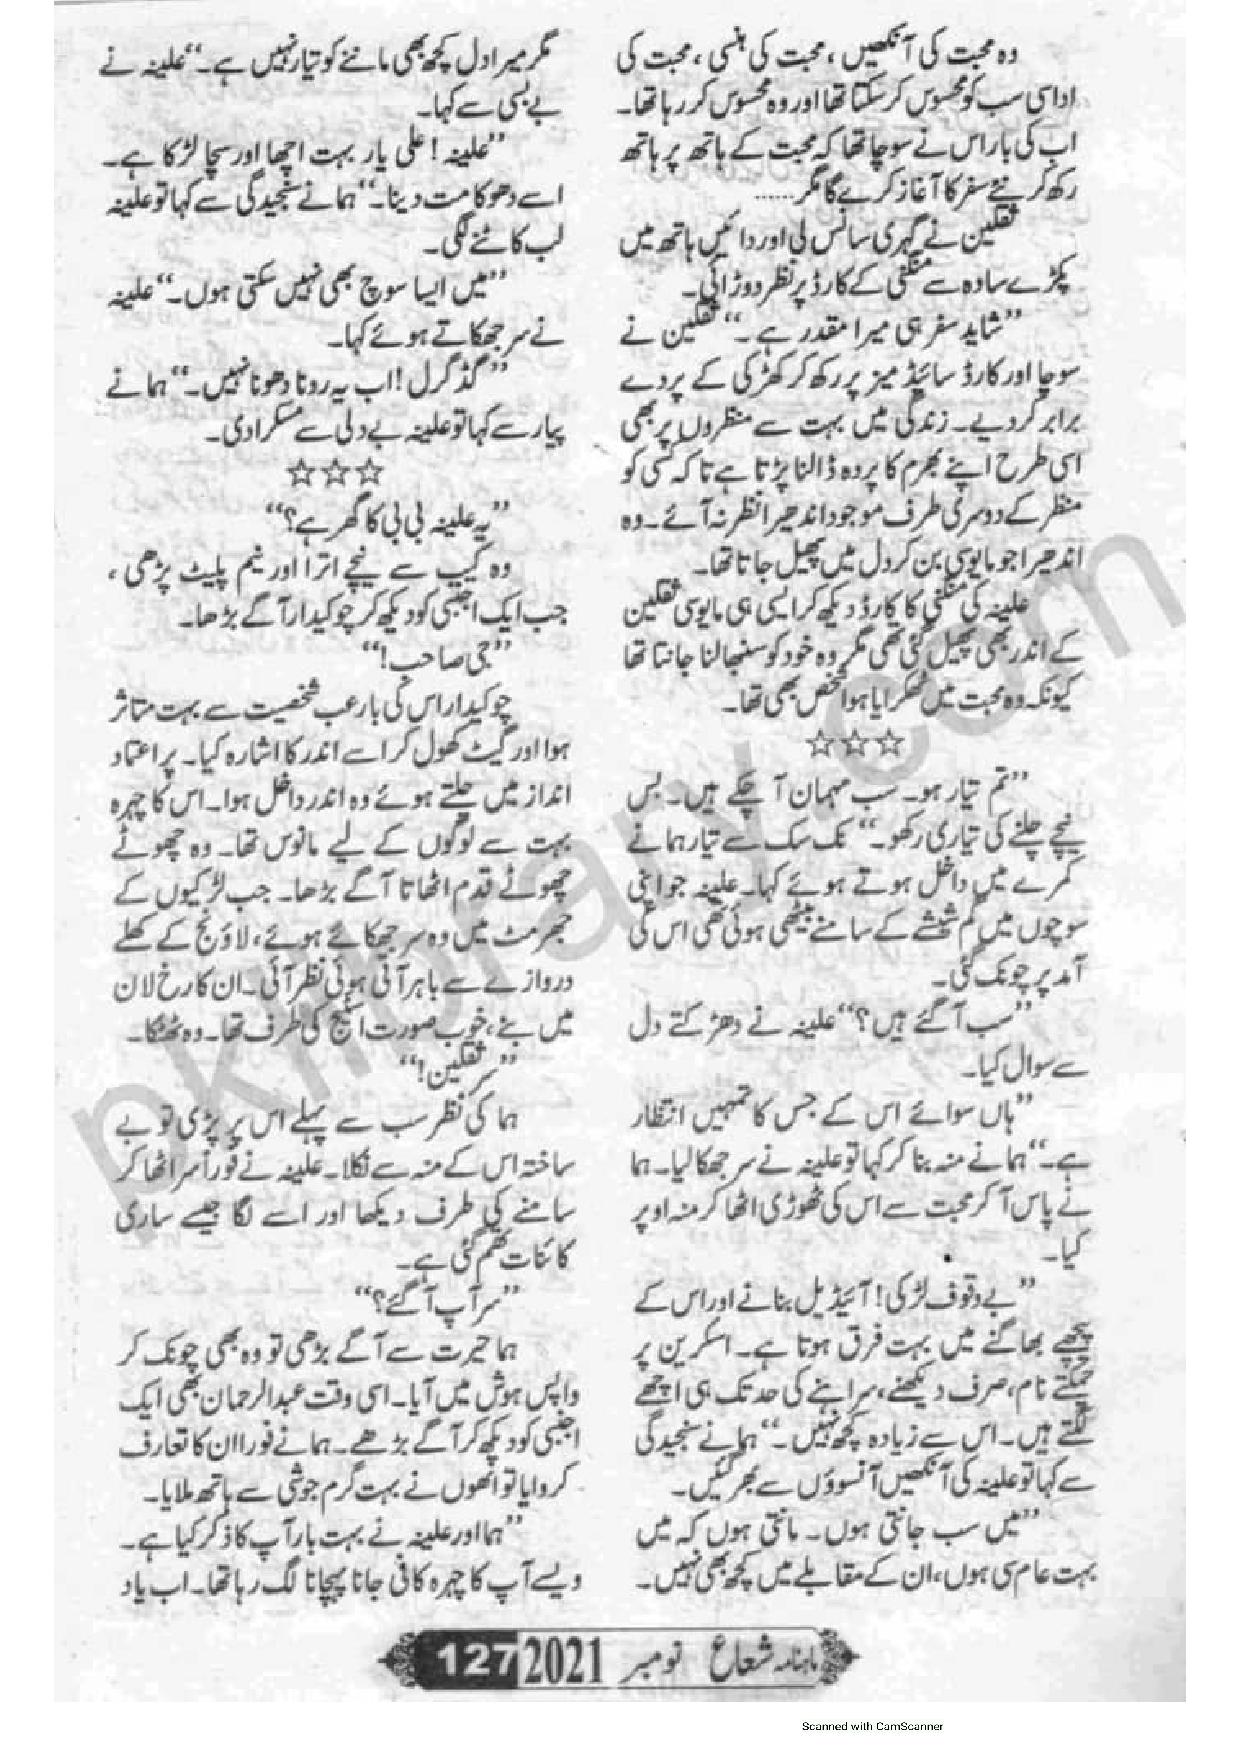 وہ محبت کی آنکھیں، محبت کی ہنسی، محبت کی
اداسی سب کو محسوس کر سکتا تھا اور وہ محسوس کر رہا تھا۔
اب کی بار اس نے سوچا تھا کہ محبت کے ہاتھ پر ہاتھ
رکھ کر نئے سفر کا آغاز کرے گا مگر......
ثقلین نے گہری سانس لی اور دائیں ہاتھ میں
پکڑے سادہ سے منگنی کے کارڈ پر نظر دوڑائی۔
”شاید سفر ہی میرا مقدر ہے۔“ ثقلین نے
سوچا اور کارڈ سائیڈ میز پر رکھ کر کھڑکی کے پردے
برابر کر دیے۔ زندگی میں بہت سے منظروں پر بھی
اسی طرح اپنے بھرم کا پردہ ڈالنا پڑتا ہے تاکہ کسی کو
منظر کے دوسری طرف موجود اندھیرا نظر نہ آئے۔ وہ
اندھیرا جو مایوسی بن کر دل میں پھیل جاتا تھا۔
علینہ کی منگنی کا کارڈ دیکھ کر ایسی ہی مایوسی ثقلین
کے اندر بھی پھیل گئی تھی مگر وہ خود کو سنبھالنا جانتا تھا
کیونکہ وہ محبت میں ٹھکرایا ہوا شخص بھی تھا۔
☆☆☆
”تم تیار ہو۔ سب مہمان آ چکے ہیں۔ بس
نیچے چلنے کی تیاری رکھو۔“ تک سک سے تیار ہما نے
کمرے میں داخل ہوتے ہوئے کہا۔ علینہ جو اپنی
سوچوں میں گم شیشے کے سامنے بیٹھی ہوئی تھی اس کی
آمد پر چونک گئی۔
”سب آ گئے ہیں؟“ علینہ نے دھڑکتے دل
سے سوال کیا۔
”ہاں سوائے اس کے جس کا تمہیں انتظار
ہے۔“ ہما نے منہ بنا کر کہا تو علینہ نے سر جھکا لیا۔ ہما
نے پاس آ کر محبت سے اس کی ٹھوڑی اٹھا کر منہ اوپر
کیا۔
”بے وقوف لڑکی! آئیڈیل بنانے اور اس کے
پیچھے بھاگنے میں بہت فرق ہوتا ہے۔ اسکرین پر
چمکتے نام، صرف دیکھنے، سراہنے کی حد تک ہی اچھے
لگتے ہیں۔ اس سے زیادہ کچھ نہیں۔“ ہما نے سنجیدگی
سے کہا تو علینہ کی آنکھیں آنسوؤں سے بھر گئیں۔
”میں سب جانتی ہوں۔ مانتی ہوں کہ میں
بہت عام سی ہوں، ان کے مقابلے میں کچھ بھی نہیں۔
مگر میرا دل کچھ بھی ماننے کو تیار نہیں ہے۔“ علینہ نے
بے بسی سے کہا۔
”علینہ! علی یار بہت اچھا اور سچا لڑکا ہے۔
اسے دھوکا مت دینا۔“ ہما نے سنجیدگی سے کہا تو علینہ
لب کاٹنے لگی۔
”میں ایسا سوچ بھی نہیں سکتی ہوں۔“ علینہ
نے سر جھکاتے ہوئے کہا۔
”گڈ گرل! اب یہ رونا دھونا نہیں۔“ ہما نے
پیار سے کہا تو علینہ بے دلی سے مسکرا دی۔
☆☆☆
”یہ علینہ بی بی کا گھر ہے؟“
وہ کیب سے نیچے اترا اور نیم پلیٹ پڑھی،
جب ایک اجنبی کو دیکھ کر چوکیدار آگے بڑھا۔
”جی صاحب!“
چوکیدار اس کی بارعب شخصیت سے بہت متاثر
ہوا اور گیٹ کھول کر اسے اندر کا اشارہ کیا۔ پر اعتماد
انداز میں چلتے ہوئے وہ اندر داخل ہوا۔ اس کا چہرہ
بہت سے لوگوں کے لیے مانوس تھا۔ وہ چھوٹے
چھوٹے قدم اٹھاتا آگے بڑھا۔ جب لڑکیوں کے
جھرمٹ میں وہ سر جھکائے ہوئے، لاؤنج کے کھلے
دروازے سے باہر آتی ہوئی نظر آئی۔ ان کا رخ لان
میں بنے، خوب صورت اسٹیج کی طرف تھا۔ وہ ٹھٹکا۔
”سر ثقلین!“
ہما کی نظر سب سے پہلے اس پر پڑی تو بے
ساختہ اس کے منہ سے نکلا۔ علینہ نے فوراً سر اٹھا کر
سامنے کی طرف دیکھا اور اسے لگا جیسے ساری
کائنات تھم گئی ہے۔
”سر آپ آ گئے؟“
ہما حیرت سے آگے بڑھی تو وہ بھی چونک کر
واپس ہوش میں آیا۔ اسی وقت عبدالرحمان بھی ایک
اجنبی کو دیکھ کر آگے بڑھے۔ ہما نے فوراً ان کا تعارف
کروایا تو انھوں نے بہت گرم جوشی سے ہاتھ ملایا۔
”ہما اور علینہ نے بہت بار آپ کا ذکر کیا ہے۔
ویسے آپ کا چہرہ کافی جانا پہچانا لگ رہا تھا۔ اب یاد
ماہنامہ شعاع نومبر 2021 127
pklibrary.com
Scanned with CamScanner